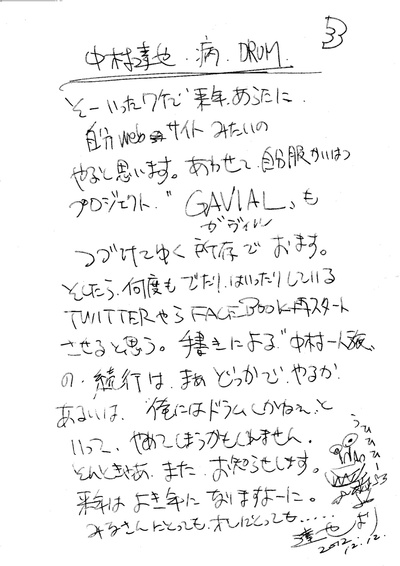 3
中村達也・病・DRUM.
そーいったワケで 来年、あらたに、
自分webサイト みたいの
やると思います。あわせて、自分服かいはつ
プロジェクト、"GAVIAL" も
ガヴィル
つづけてゆく 所存で おます。
そしたら、何度も でたり、はいったりしている
TWITTERやら FACEBOOK 再スタート
させると思う。手書きによる"中村一人旅"
の 続行は、まぁ どっかで、やるか
あるいは、俺にはドラムしかねぇ、と
いって、やめてしまうかもしれません。
そんときゃあ、また、お知らせします。
来年は よき年に なりますよーに。
みなさんにとっても、オレにとっても.....
うひひひひー
達也 より
2012.12.12.